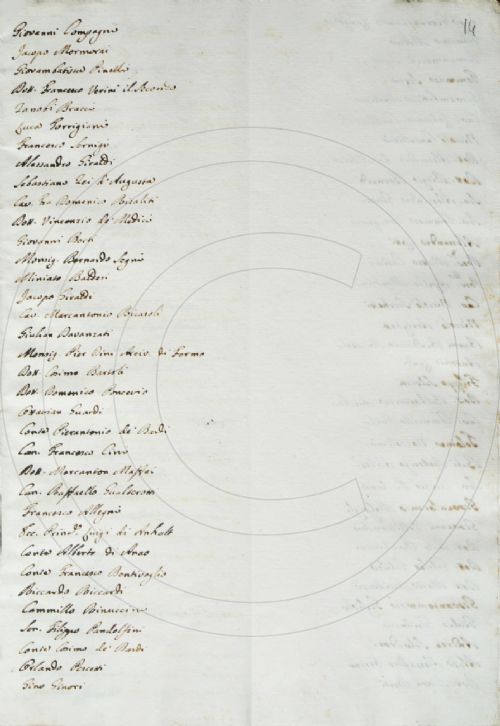 14
Giovanni Compagni
Jacopo Mormorai
Giovambatista Pinelli
Dott. Francesco Verini il Secondo
Zanobi Bracci
Luca Torrigiani
Francesco Sernigi
Alessandro Giraldi
Sebastiano d'Augusta
Cav. fra Domenico
Dott. Vincenzio de' Medici
Giovanni
Monsig. Bernardo Segni
Miniato Bardesi
Jacopo Giraldi
Cav. Marcantonio Ricasoli
Giulian Davanzati
Monsig. Pier Dini Arciv. di Fermo
Dott. Cosimo Bartoli
Dott. Domenico Poncevio
Ottavian Guardi
Conte Pierantonio de' Bardi
Can. Francesco Cini
Dott. Marcanton Maffei
Can. Raffaello Gualterotti
Francesco Allegri
Ecc. Princ. Luigi di Anhalt
Conte Alberto di
Conte Francesco Bentivoglio
Riccardo Riccardi
Cammillo Rinuccini
Sen. Filippo Pandolfini
Conte Cosimo de' Bardi
Orlando Pescetti
Gino Ginori